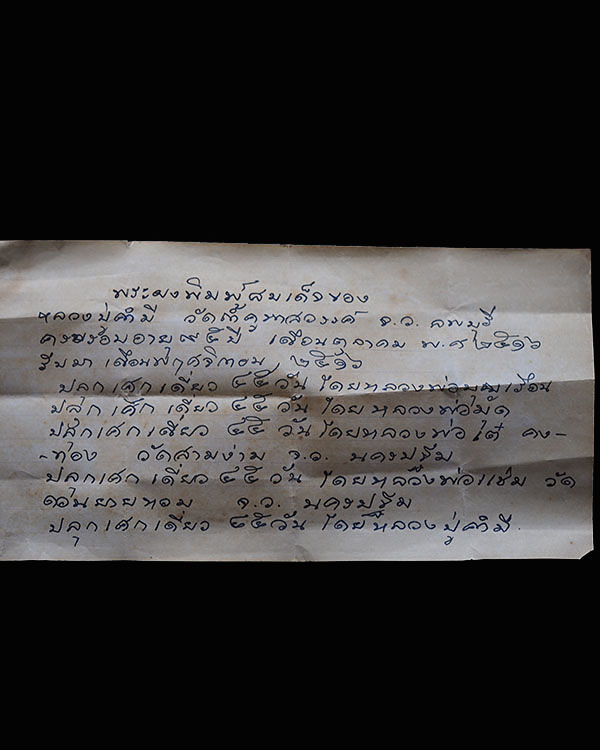 พระผงพิมพ์สมเด็จของ
หลวงปู่คำมี วัดถ้ำคูหาสวรรค์ จ.ว. ลพบุรี
ครบรอบอายุ ๘๕ ปี เดือนตุลาคม พ.ศ ๒๕๑๖
รับมา เดือนพฤศจิกายน ๒๕๑๖
ปลุกเศกเดี่ยว ๔๕ วัน โดยหลวงพ่อ
ปลุกเศกเดี่ยว ๔๕ วัน โดยหลวงพ่อมัด
ปลุกเศกเดี่ยว ๔๕ วัน โดยหลวงพ่อเต๋ คง-
-ทอง วัดสามง่าม จ.ว. นครปฐม
ปลุกเศกเดี่ยว ๔๕ วัน โดยหลวงพ่อแช่ม วัด
ดอนยายหอม จ.ว. นครปฐม
ปลุกเศกเดี่ยว ๔๕ วัน โดยหลวงปู่คำมี.